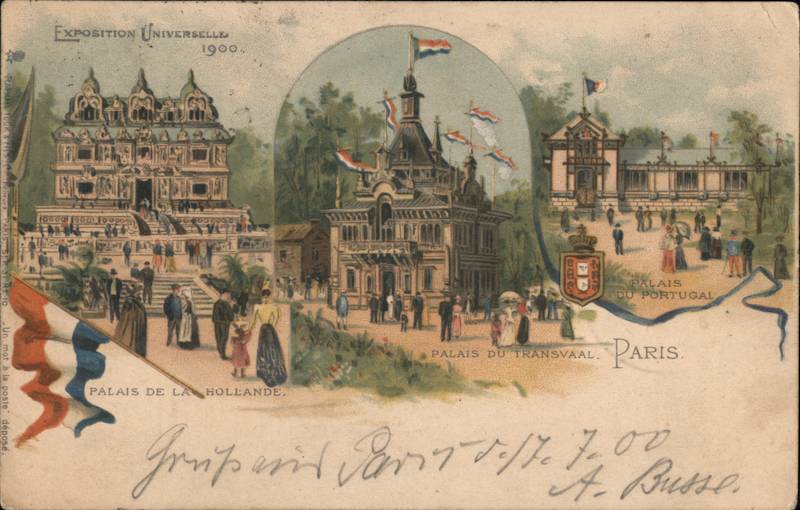 EXPOSITION UNIVERSELLE
1900.
PALAIS DE LA HOLLANDE.
PALAIS DU TRANSVAAL.
PALAIS
DU PORTUGAL
PARIS.
"Un mot à la poste" déposé.
Gruß aus Paris 5./7. 7. 00
A. Busse.